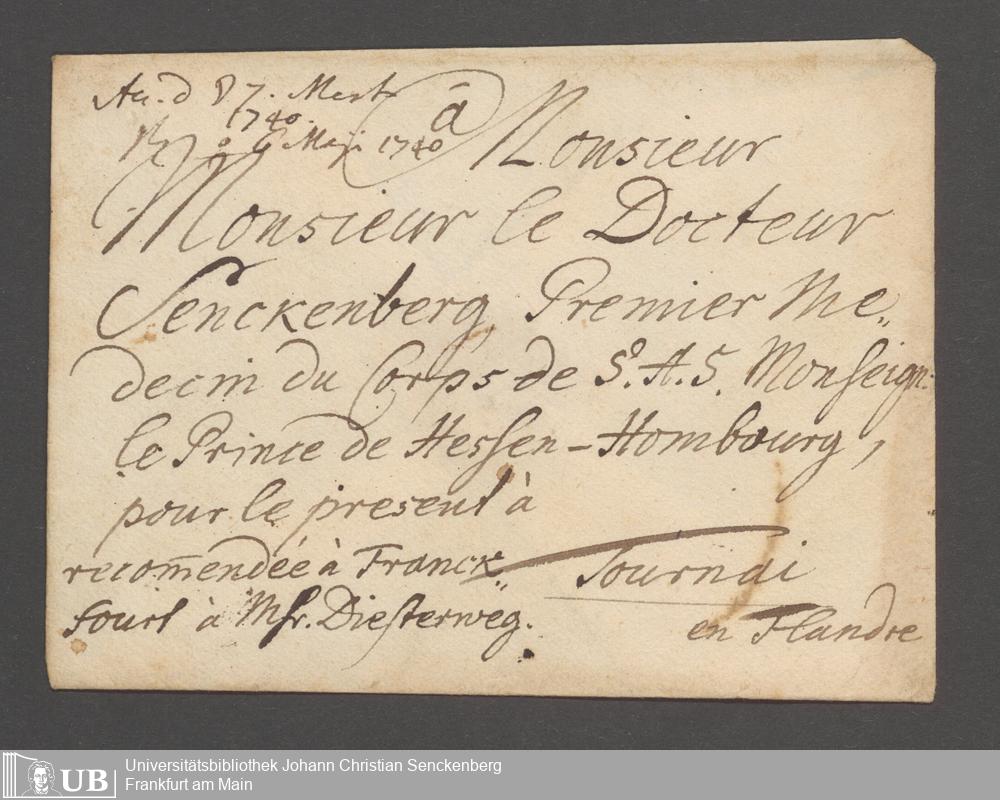 7. Mart
1740.
6 Maji 1740
à Monsieur
Monsieur le Docteur
Senckenberg, Premier Me„
decin du Corps de S. A. S. Monseign:
le Prince de Hessen-Hombourg,
pour le present à
recom̄endée à Franck„
Tournai
fourt à Msr. Diesterweg.
en Flandre
UB
Universitätsbibliothek Johann Christian Senckenberg
Frankfurt am Main